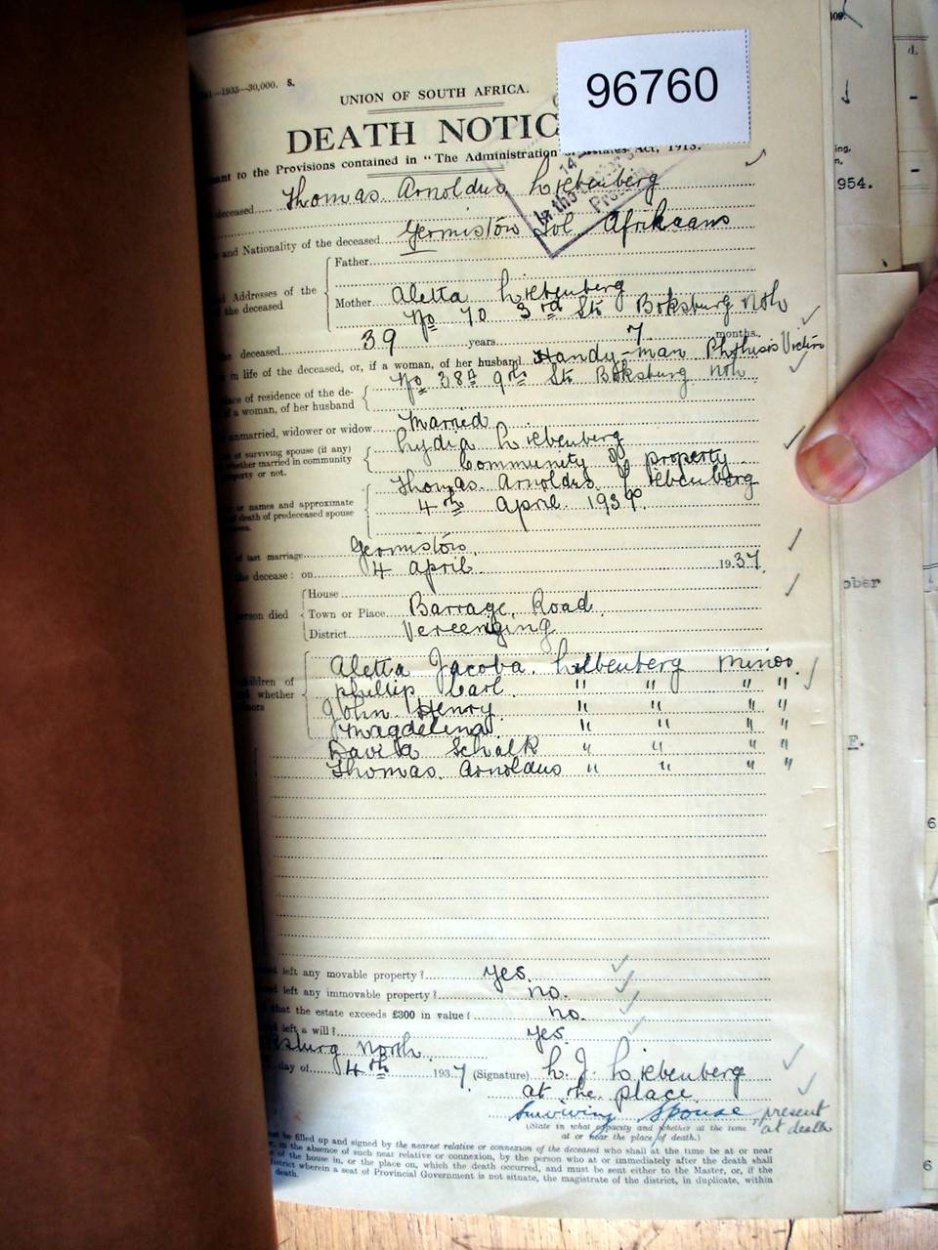 1935—30,000. S.
UNION OF SOUTH AFRICA.
96760
DEATH NOTIC
to the Provisions contained in "The Administration Estates Act, 1913.
deceased Thomas Arnoldus Liebenberg
and Nationality of the deceased Germiston Tvl Afrikaans
Father
Addresses of the
the deceased
Mother Aletta Liebenberg
No 70 3rd Str Boksburg Nth
deceased 39 years 7 months.
in life of the deceased, or, if a woman, of her husband Handy-man Phthisis Victim
place of residence of the de-
a woman, of her husband
No 38A 9th Str Boksburg Nth
unmarried, widower or widow Married
of surviving spouse (if any)
whether married in community
property or not.
Lydia Liebenberg
Community of property
or names and approximate
death of predeceased spouse
Thomas Arnoldus Liebenberg
4th April 1939
of last marriage Germiston
the decease: on 4 April 1937
person died
House
Town or Place Barrage Road
District Vereeniging
children of
whether
Aletta Jacoba Liebenberg minor
Phillip Carl " " " "
John Henry " " " "
Magdelina " " " "
David Schalk " " " "
Thomas Arnoldus " " " "
left any movable property? yes
left any immovable property? no.
that the estate exceeds £300 in value? no.
left a will? yes
ksburg North
day of 4th 1937 (Signature) L. J. Liebenberg
at the place
Surviving Spouse present
at death
(State in what capacity and whether at the time
at or near the place of death.)
be filled up and signed by the nearest relative or connexion of the deceased who shall at the time be at or near
in the absence of such near relative or connexion, by the person who at or immediately after the death shall
of the house in, or the place on, which the death occurred, and must be sent either to the Master, or, if the
district wherein a seat of Provincial Government is not situate, the magistrate of the district, in duplicate, within
death.
d.
954.
ober
F.
6
6